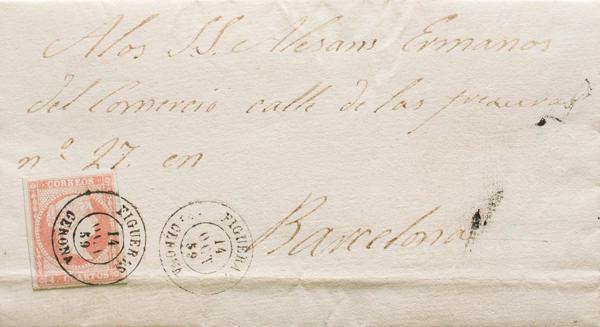 Alos SS. Alesans Ermanos
del Comercio calle de las
nº 27. en
Barcelona
CORREOS
4 CUARTOS
FIGUERAS
14
OCT
59
GERONA
FIGUERAS
14
OCT
59
GERONA